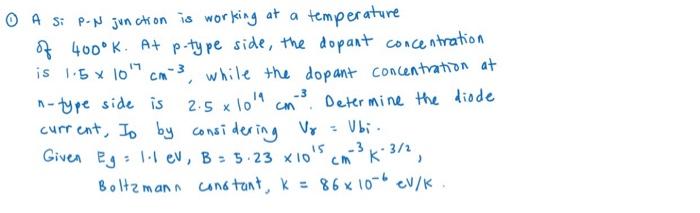 ① A Si P-N junction is working at a temperature
of 400°K. At p-type side, the dopant concentration
is 1.5 x 10¹⁷ cm⁻³, while the dopant concentration at
n-type side is 2.5 x 10¹⁹ cm⁻³. Determine the diode
current, I_D by considering Vr = Vbi.
Given Eg = 1.1 eV, B = 5.23 x10¹⁵ cm⁻³ K⁻³/²,
Boltzmann constant, k = 86 x 10⁻⁶ eV/K.